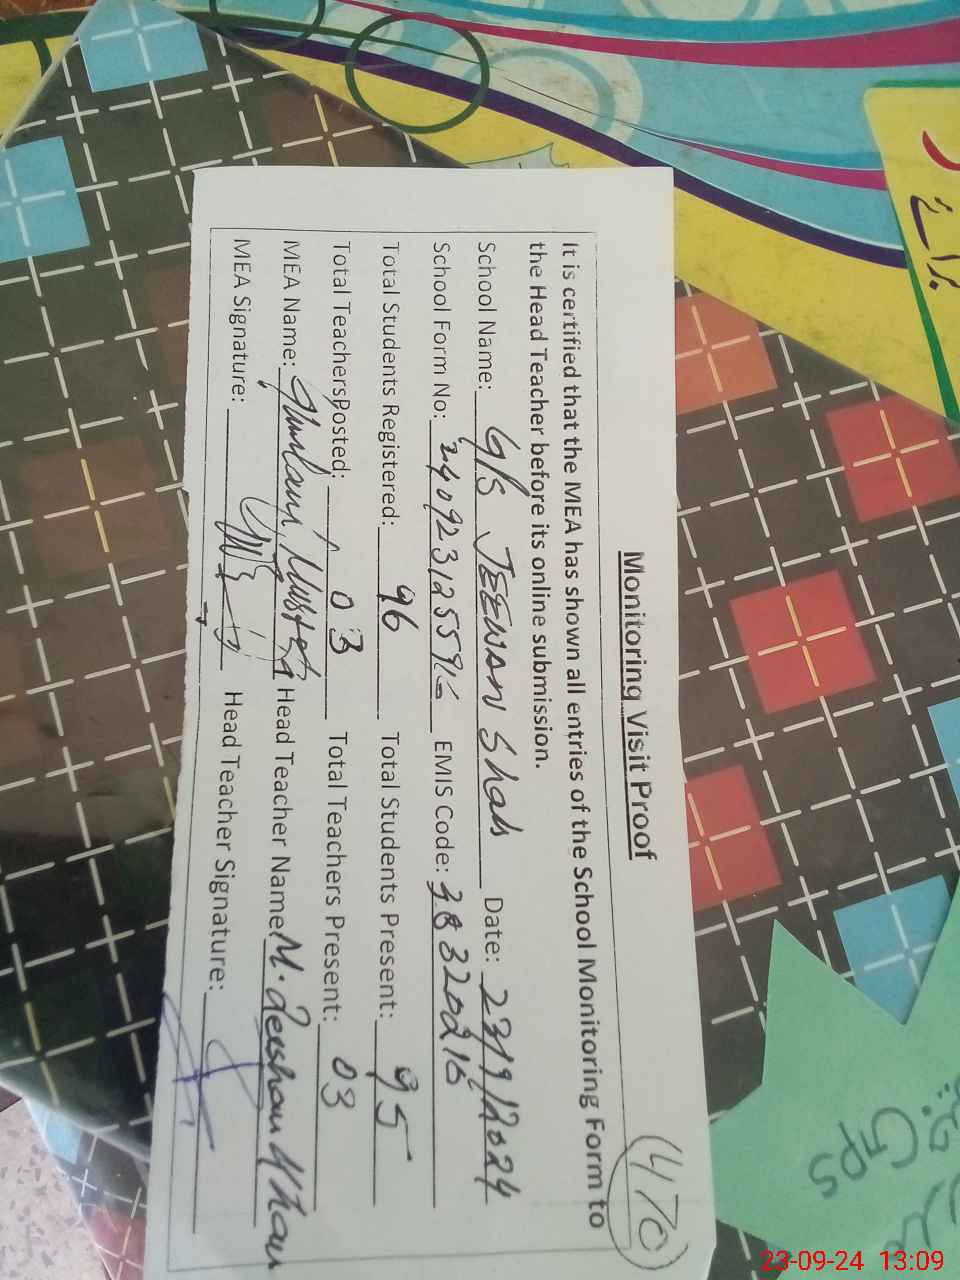 470
Monitoring Visit Proof
It is certified that the MEA has shown all entries of the School Monitoring Form to
the Head Teacher before its online submission.
School Name: G/S JEEWAN Shah Date: 23/9/2024
School Form No: EMIS Code: 38320216
Total Students Registered: 96 Total Students Present: 95
Total TeachersPosted: 03 Total Teachers Present: 03
MEA Name: Ghulam Mustafa Head Teacher Name: M. Zeeshan Khan
MEA Signature: Head Teacher Signature:
GPS
23-09-24 13:09